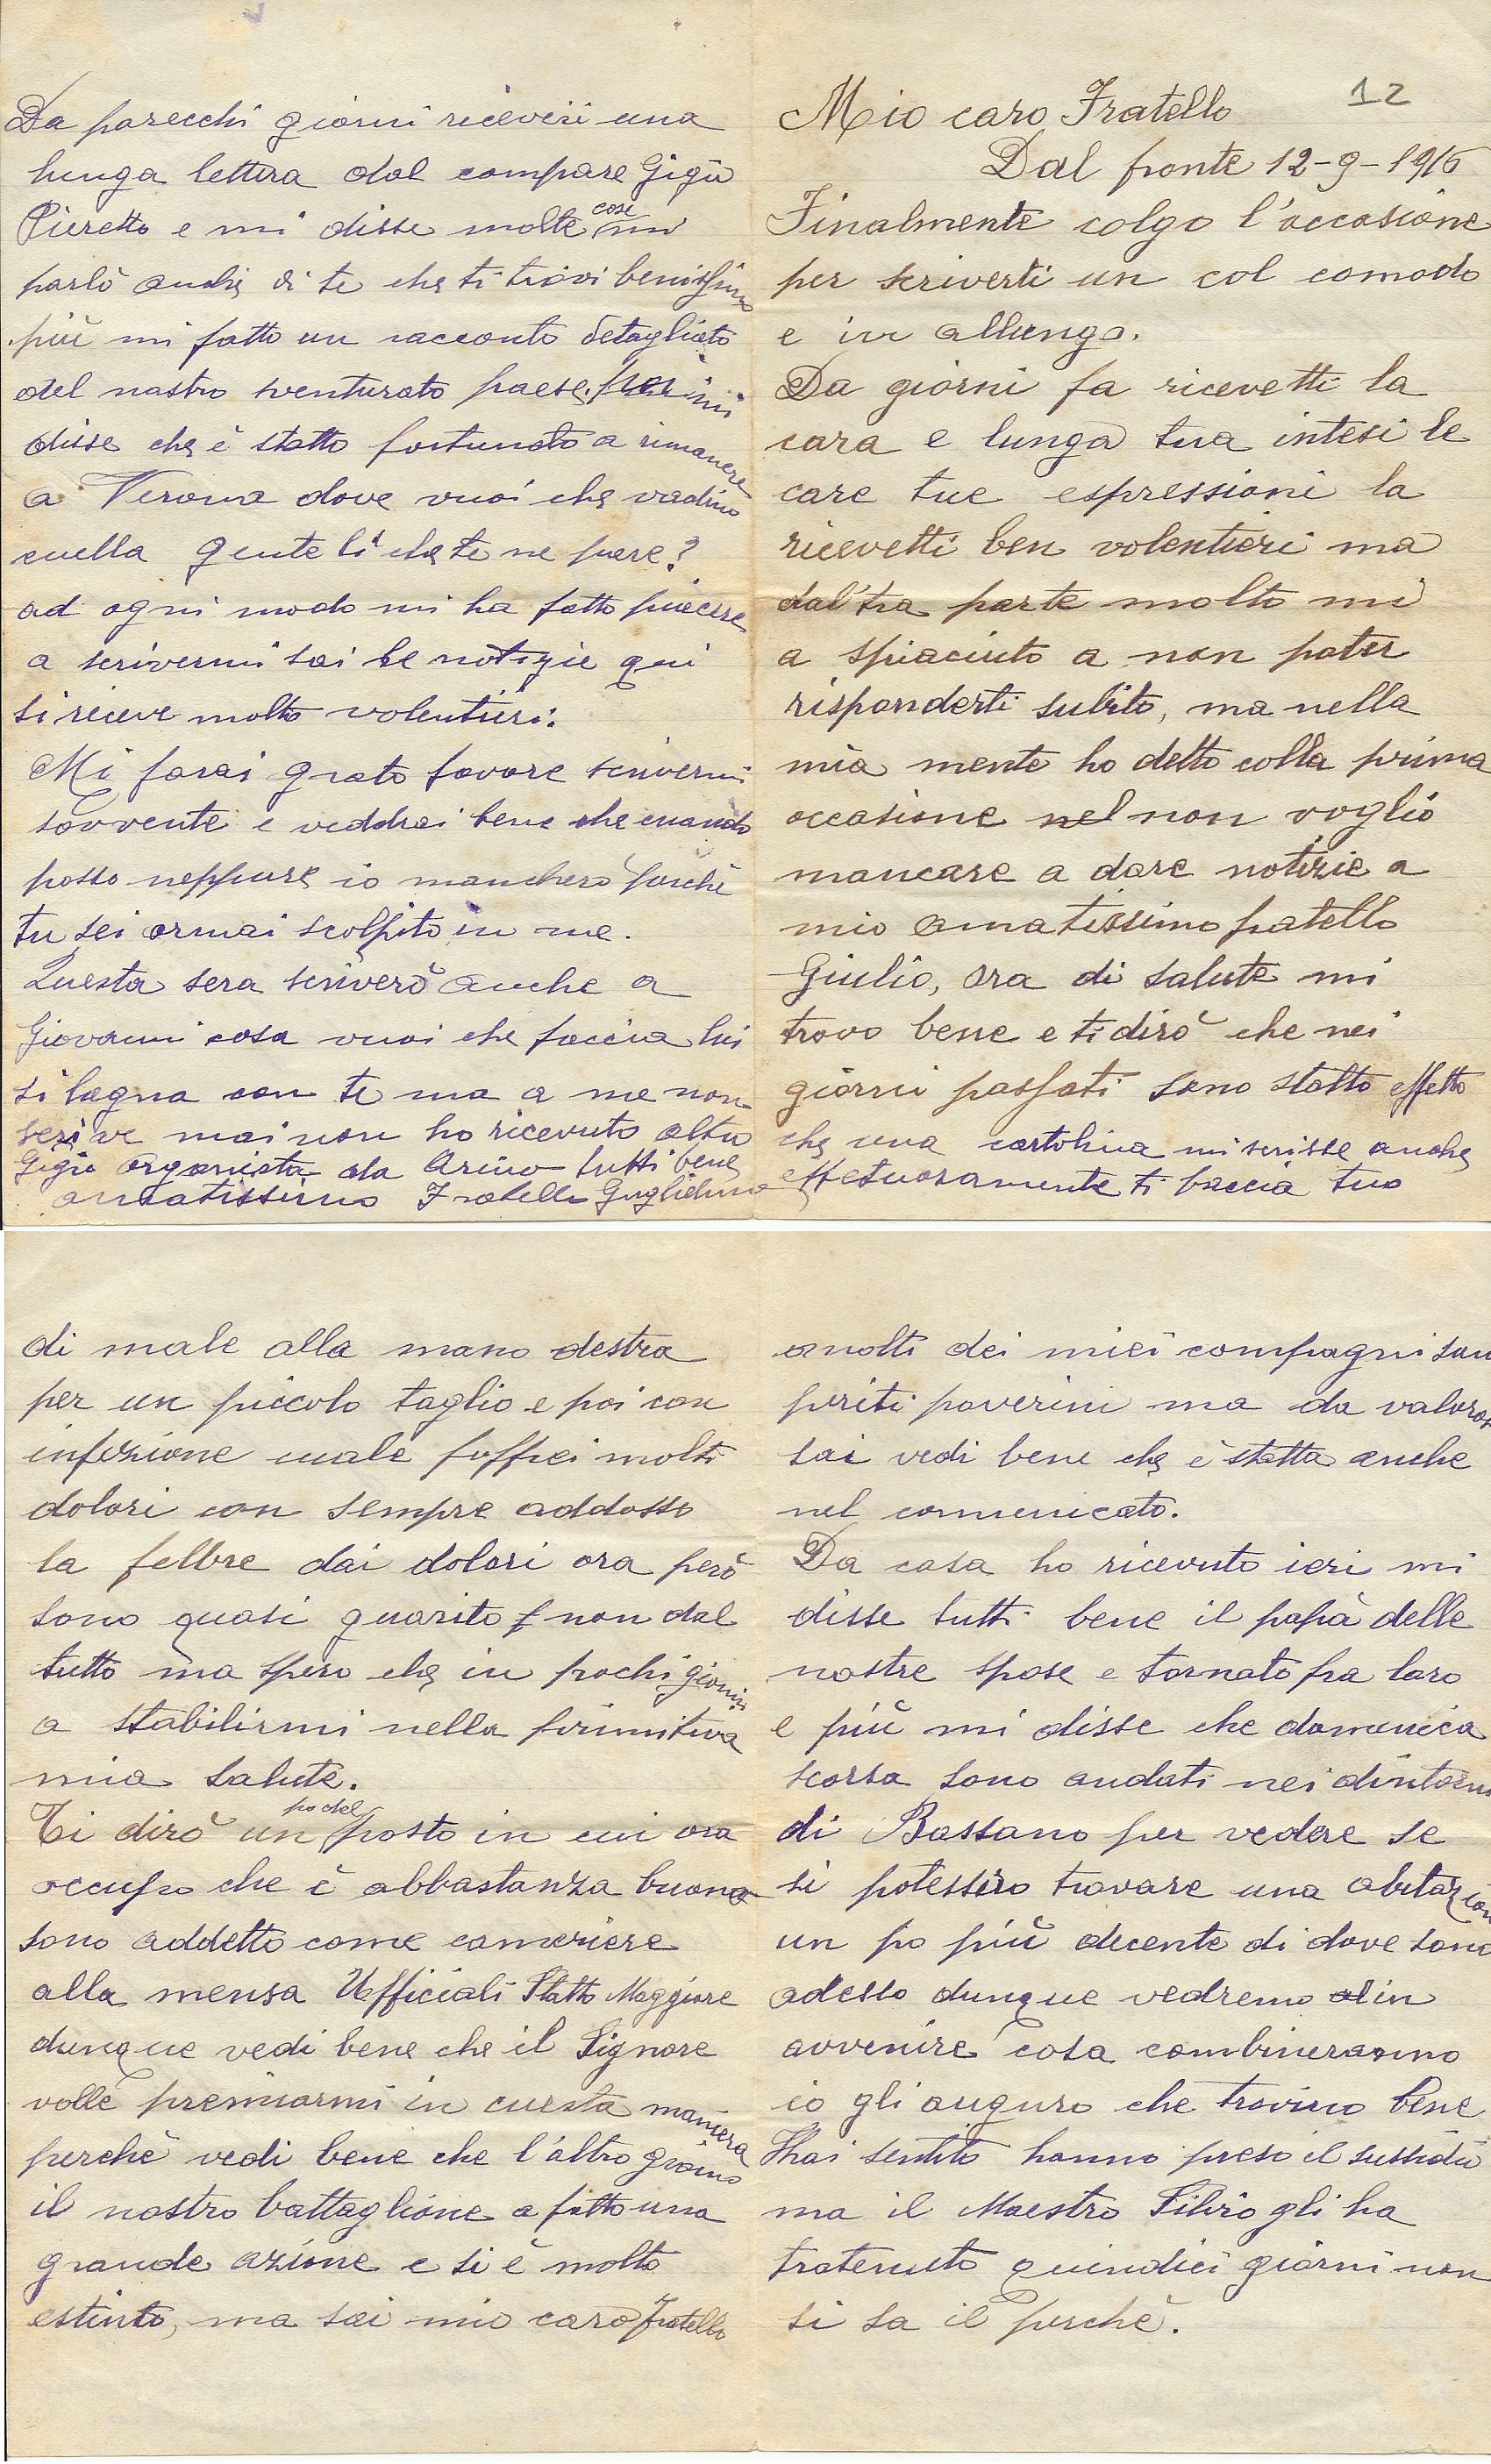 12
Mio caro Fratello
Dal fronte 12-9-1916
Finalmente colgo l'occasione
per scriverti un col comodo
e in allungo.
Da giorni fa ricevetti la
cara e lunga tua intesi le
care tue espressioni la
ricevetti ben volentieri ma
dal'tra parte molto mi
a spiaciuto a non poter
risponderti subito, ma nella
mia mente ho detto colla prima
occasione nel non voglio
mancare a dare notizie a
mio amatissimo fratello
Giulio, ora di salute mi
trovo bene e ti dirò che nei
giorni passati sono statto effetto
di male alla mano destra
per un piccolo taglio e poi con
infezione cuale soffrei molti
dolori con sempre addosso
la febbre dai dolori ora però
sono quasi guarito f non dal
tutto ma spero che in pochi giorni
a stabilirmi nella primitiva
mia salute.
Ti dirò un po del posto in cui ora
occupo che è abbastanza buono
sono addetto come cameriere
alla mensa Ufficiali Statto Maggiore
dunque vedi bene che il Signore
volle premiarmi in cuesta maniera
perchè vedi bene che l'altro giorno
il nostro battaglione a fatto una
grande azione e si è molto
estinto, ma sai mio caro fratello
molti dei miei compagni son
periti poverini ma da valorosi
sai vedi bene che è statta anche
nel comunicato.
Da casa ho ricevuto ieri mi
disse tutti bene il papà delle
nostre spose e tornato fra loro
e più mi disse che domenica
scorsa sono andati nei dintorni
di Bassano per vedere se
si potessero trovare una abitazion
un po più decente di dove sono
adesso dunque vedremo al in
avvenire cosa combineranno
io gli auguro che trovino bene
L'hai sentito hanno preso il sussidio
ma il Maestro Silvio gli ha
tratenuto quindici giorni non
si sa il perchè.
Da parecchi giorni ricevei una
lunga lettera dal compare Gigio
Pieretto e mi disse molte cose mi
parlò anche di te che ti trovi benissimo
più mi fatto un racconto detagliato
del nostro sventurato paese. poi mi
disse che è statto fortunato a rimanere
a Verona dove vuoi che vadino
cuella gente lì che te ne pare?
ad ogni modo mi ha fatto piacere
a scrivermi sai le notizie qui
si riceve molto volentieri.
Mi farai grato favore scrivermi
sovvente e veddrai bene che cuando
posso neppure io mancherò perchè
tu sei ormai scolpito in me.
Questa sera scriverò anche a
Giovanni cosa vuoi che faccia lui
si lagna con te ma a me non
scrive mai non ho ricevuto altro
che una cartolina mi scrisse anche
Gigio organista da Arino tutti bene
affetuosamente ti baccia tuo
amatissimo Fratello Guglielmo